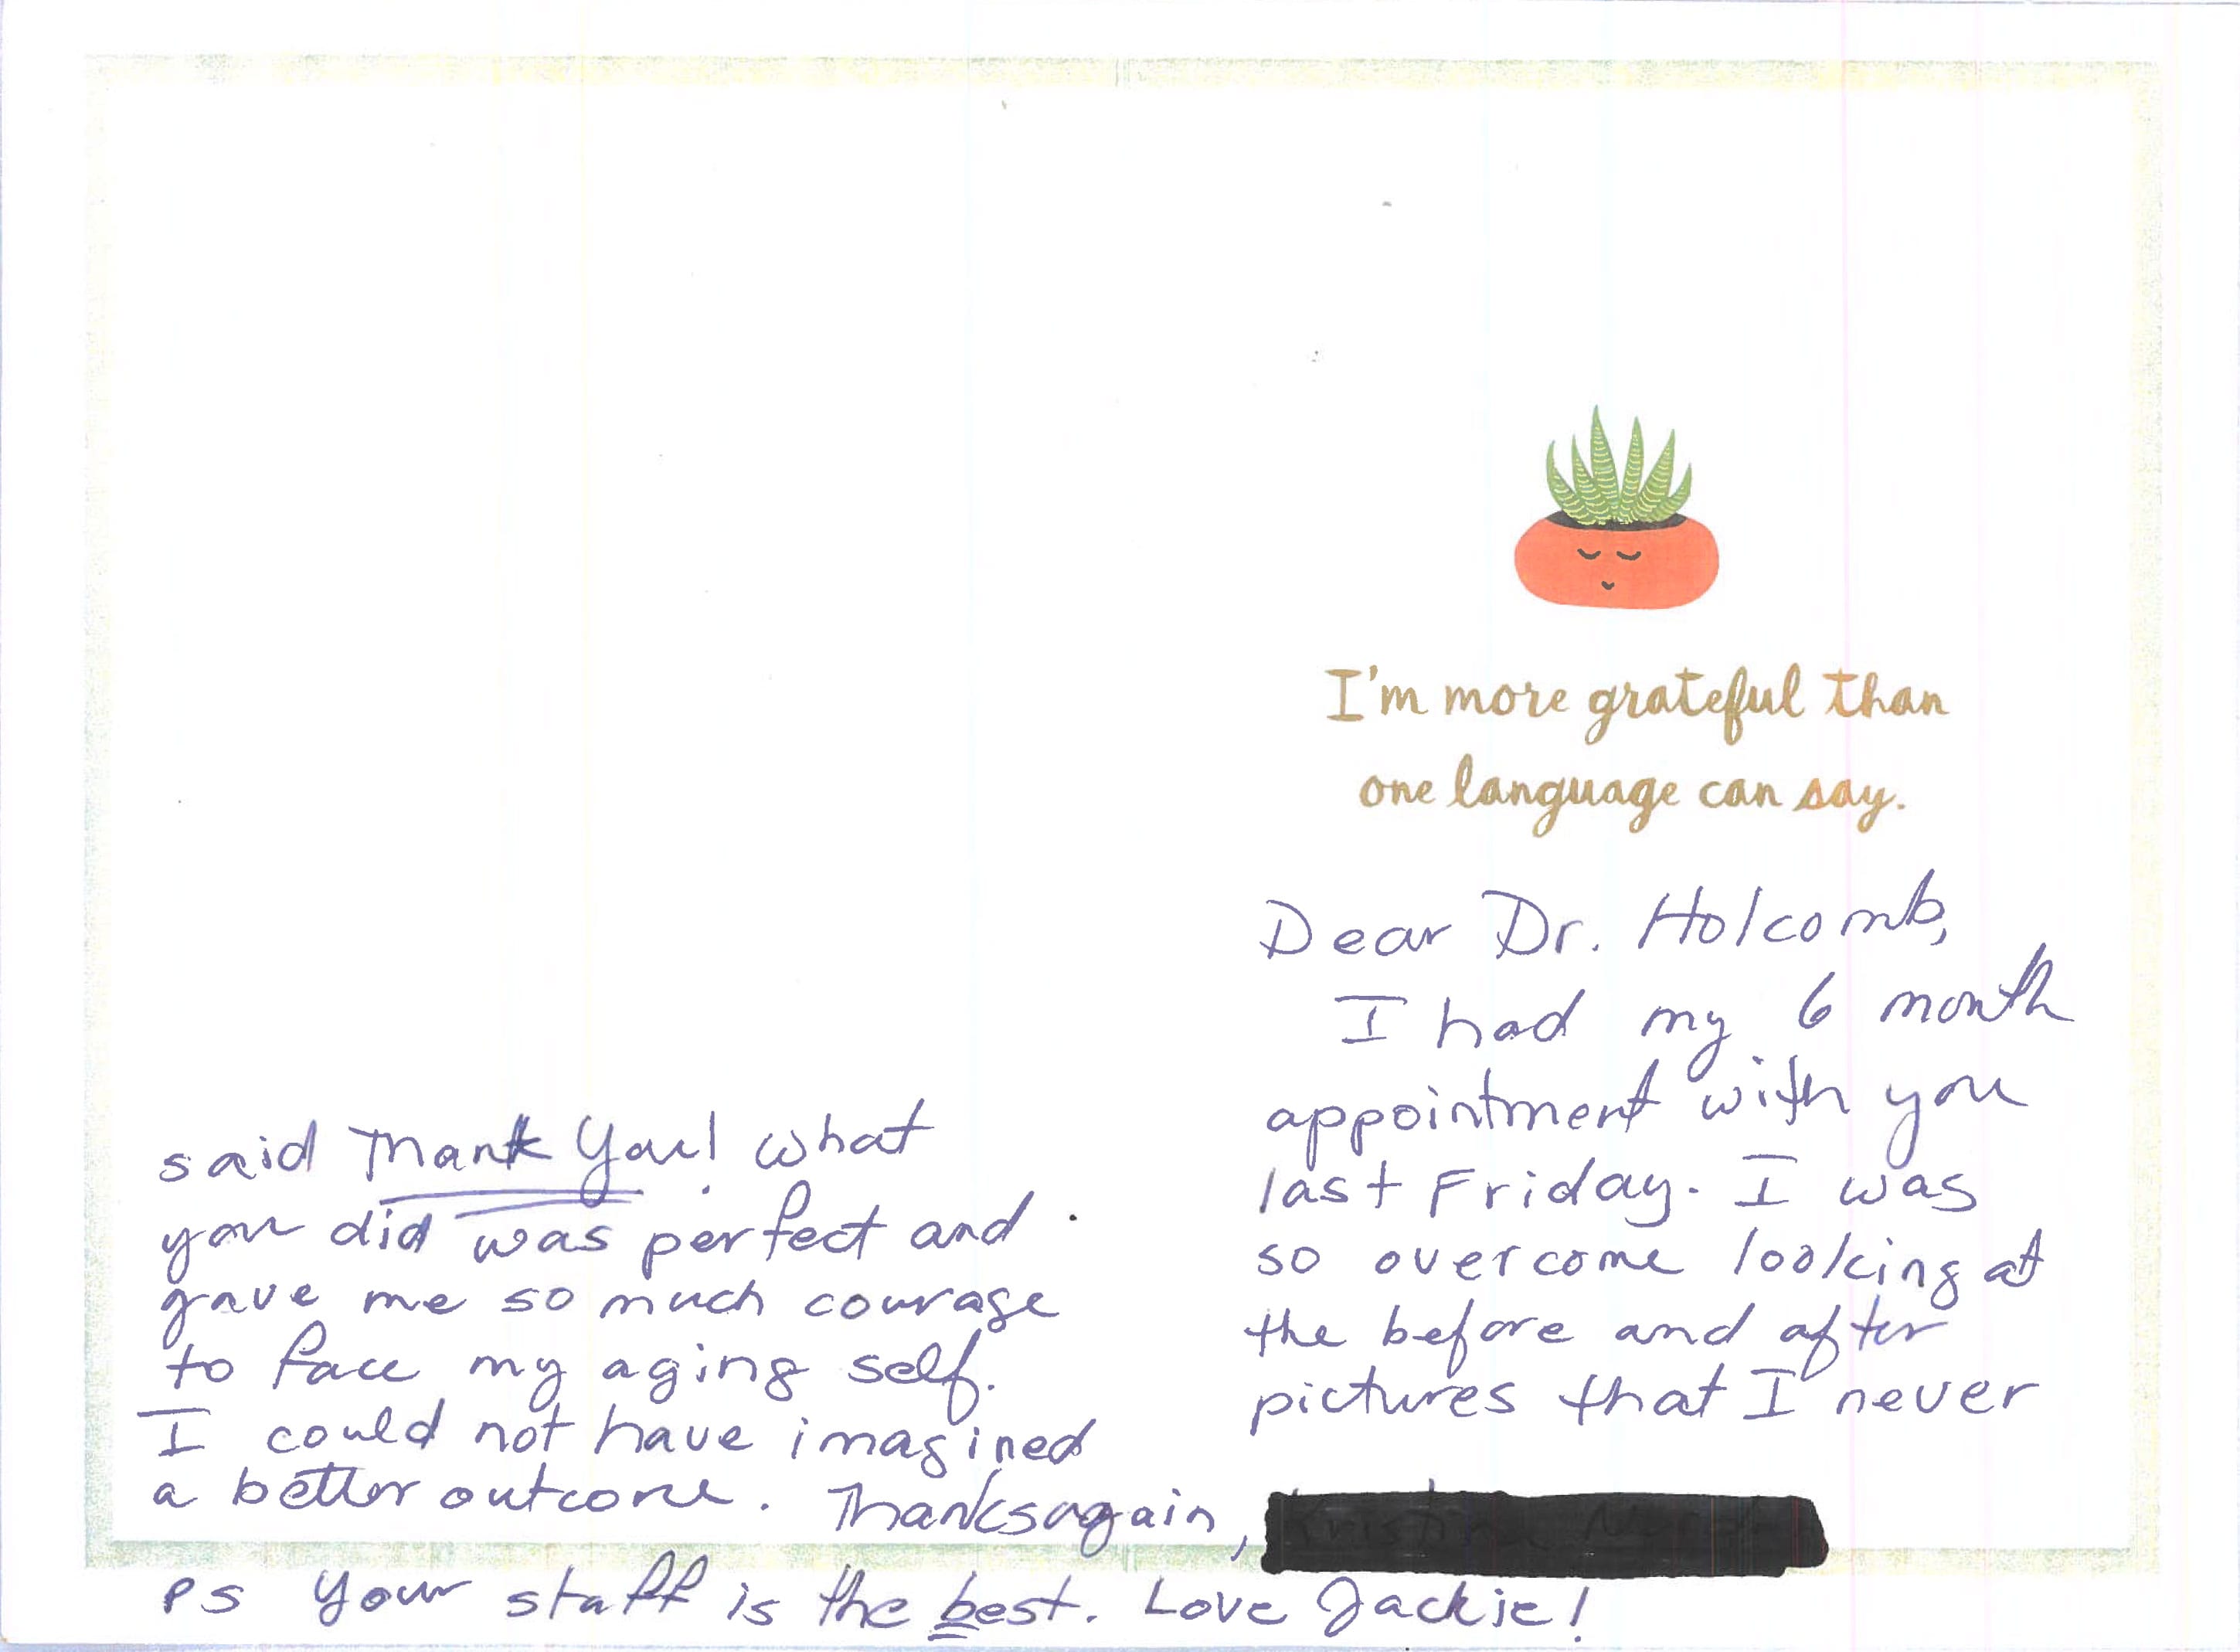 I'm more grateful than
one language can say.
Dear Dr. Holcomb,
I had my 6 month
appointment with you
last Friday. I was
so overcome looking at
the before and after
pictures that I never
said Thank You! what
you did was perfect and
gave me so much courage
to face my aging self.
I could not have imagined
a better outcome. Thanks again,
PS Your staff is the best. Love Jackie!